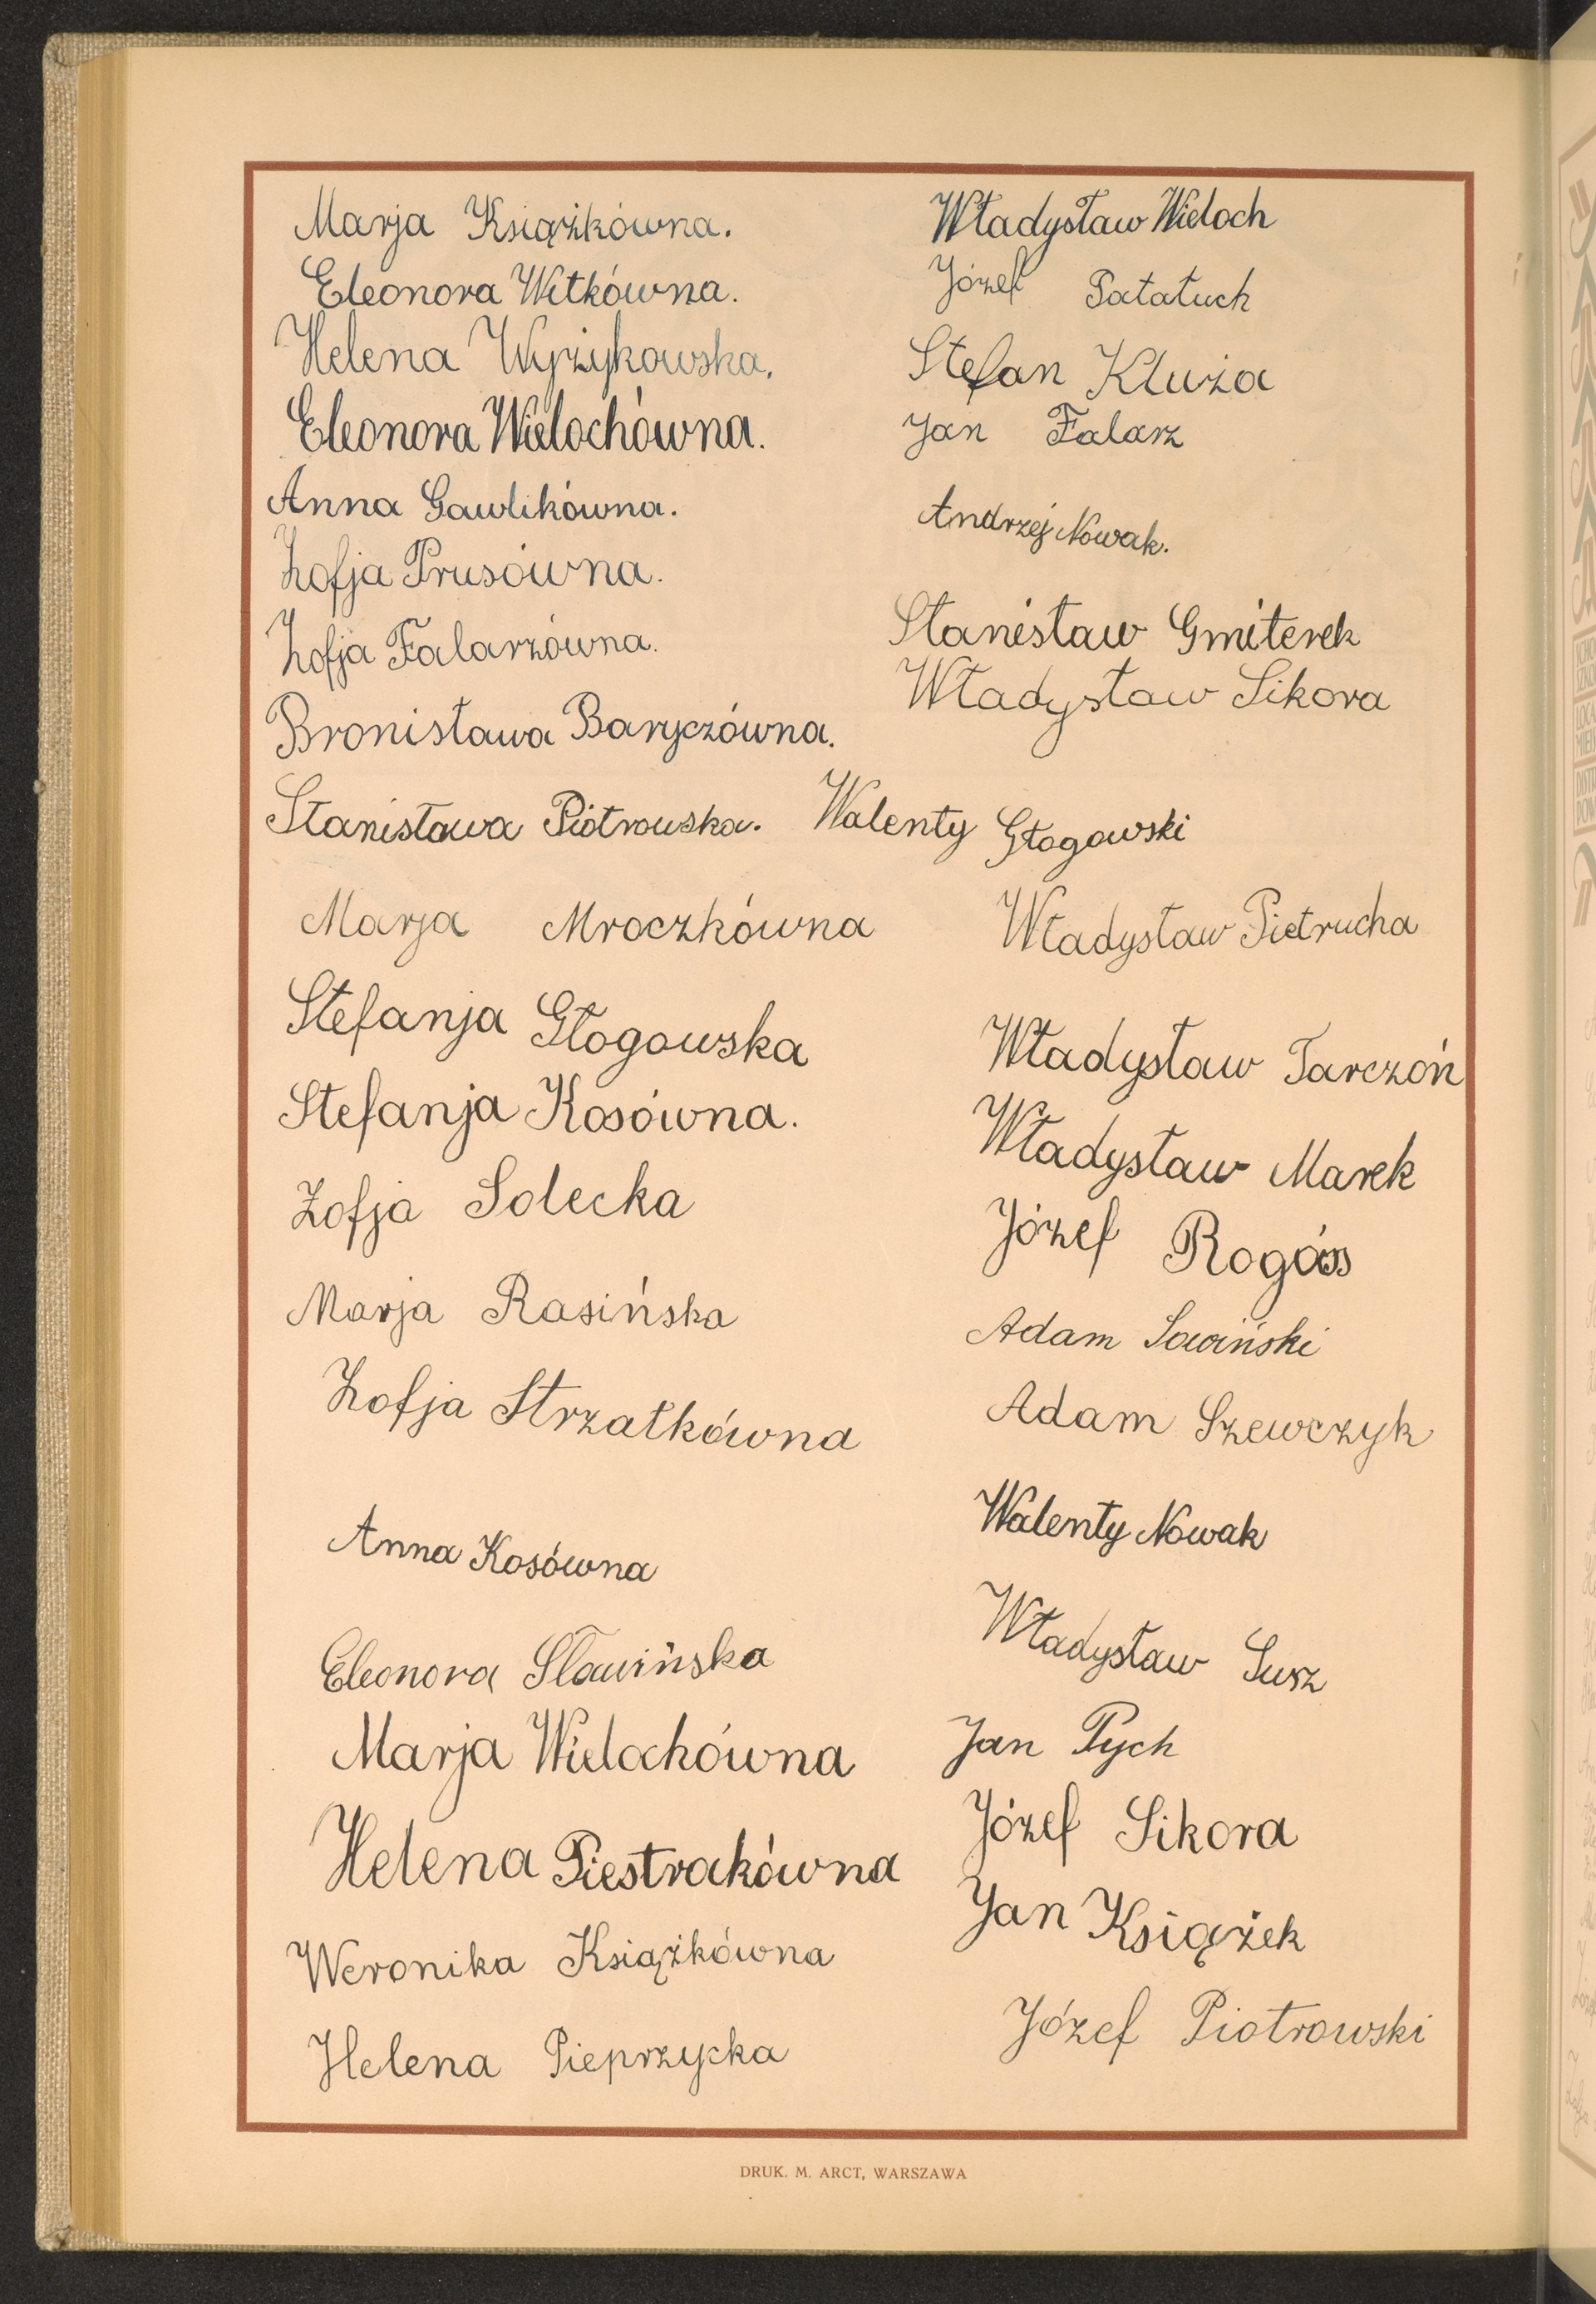 Marja Książkówna.
Eleonora Witkówna.
Helena Wyrzykowska.
Eleonora Wielochówna.
Anna Gawlikówna.
Zofja Prusówna.
Zofja Falarzówna.
Bronisława Baryczówna.
Stanisława Piotrowska.
Marja Mroczkówna
Stefanja Głogowska
Stefanja Kosówna.
Zofja Solecka
Marja Rasińska
Zofja Strzałkówna
Anna Kosówna
Eleonora Sławińska
Marja Wielochówna
Helena Piestrakówna
Weronika Książkówna
Helena Pieprzycka
Władysław Wieloch
Józef Patałuch
Stefan Kluża
Jan Falarz
Andrzej Nowak.
Stanisław Gmiterek
Władysław Sikora
Walenty Głogowski
Władysław Pietrucha
Władysław Tarczoń
Władysław Marek
Józef
Adam Sawiński
Adam Szewczyk
Walenty Nowak
Władysław Surz
Jan Pych
Józef Sikora
Jan Książek
Józef Piotrowski
DRUK. M. ARCT, WARSZAWA